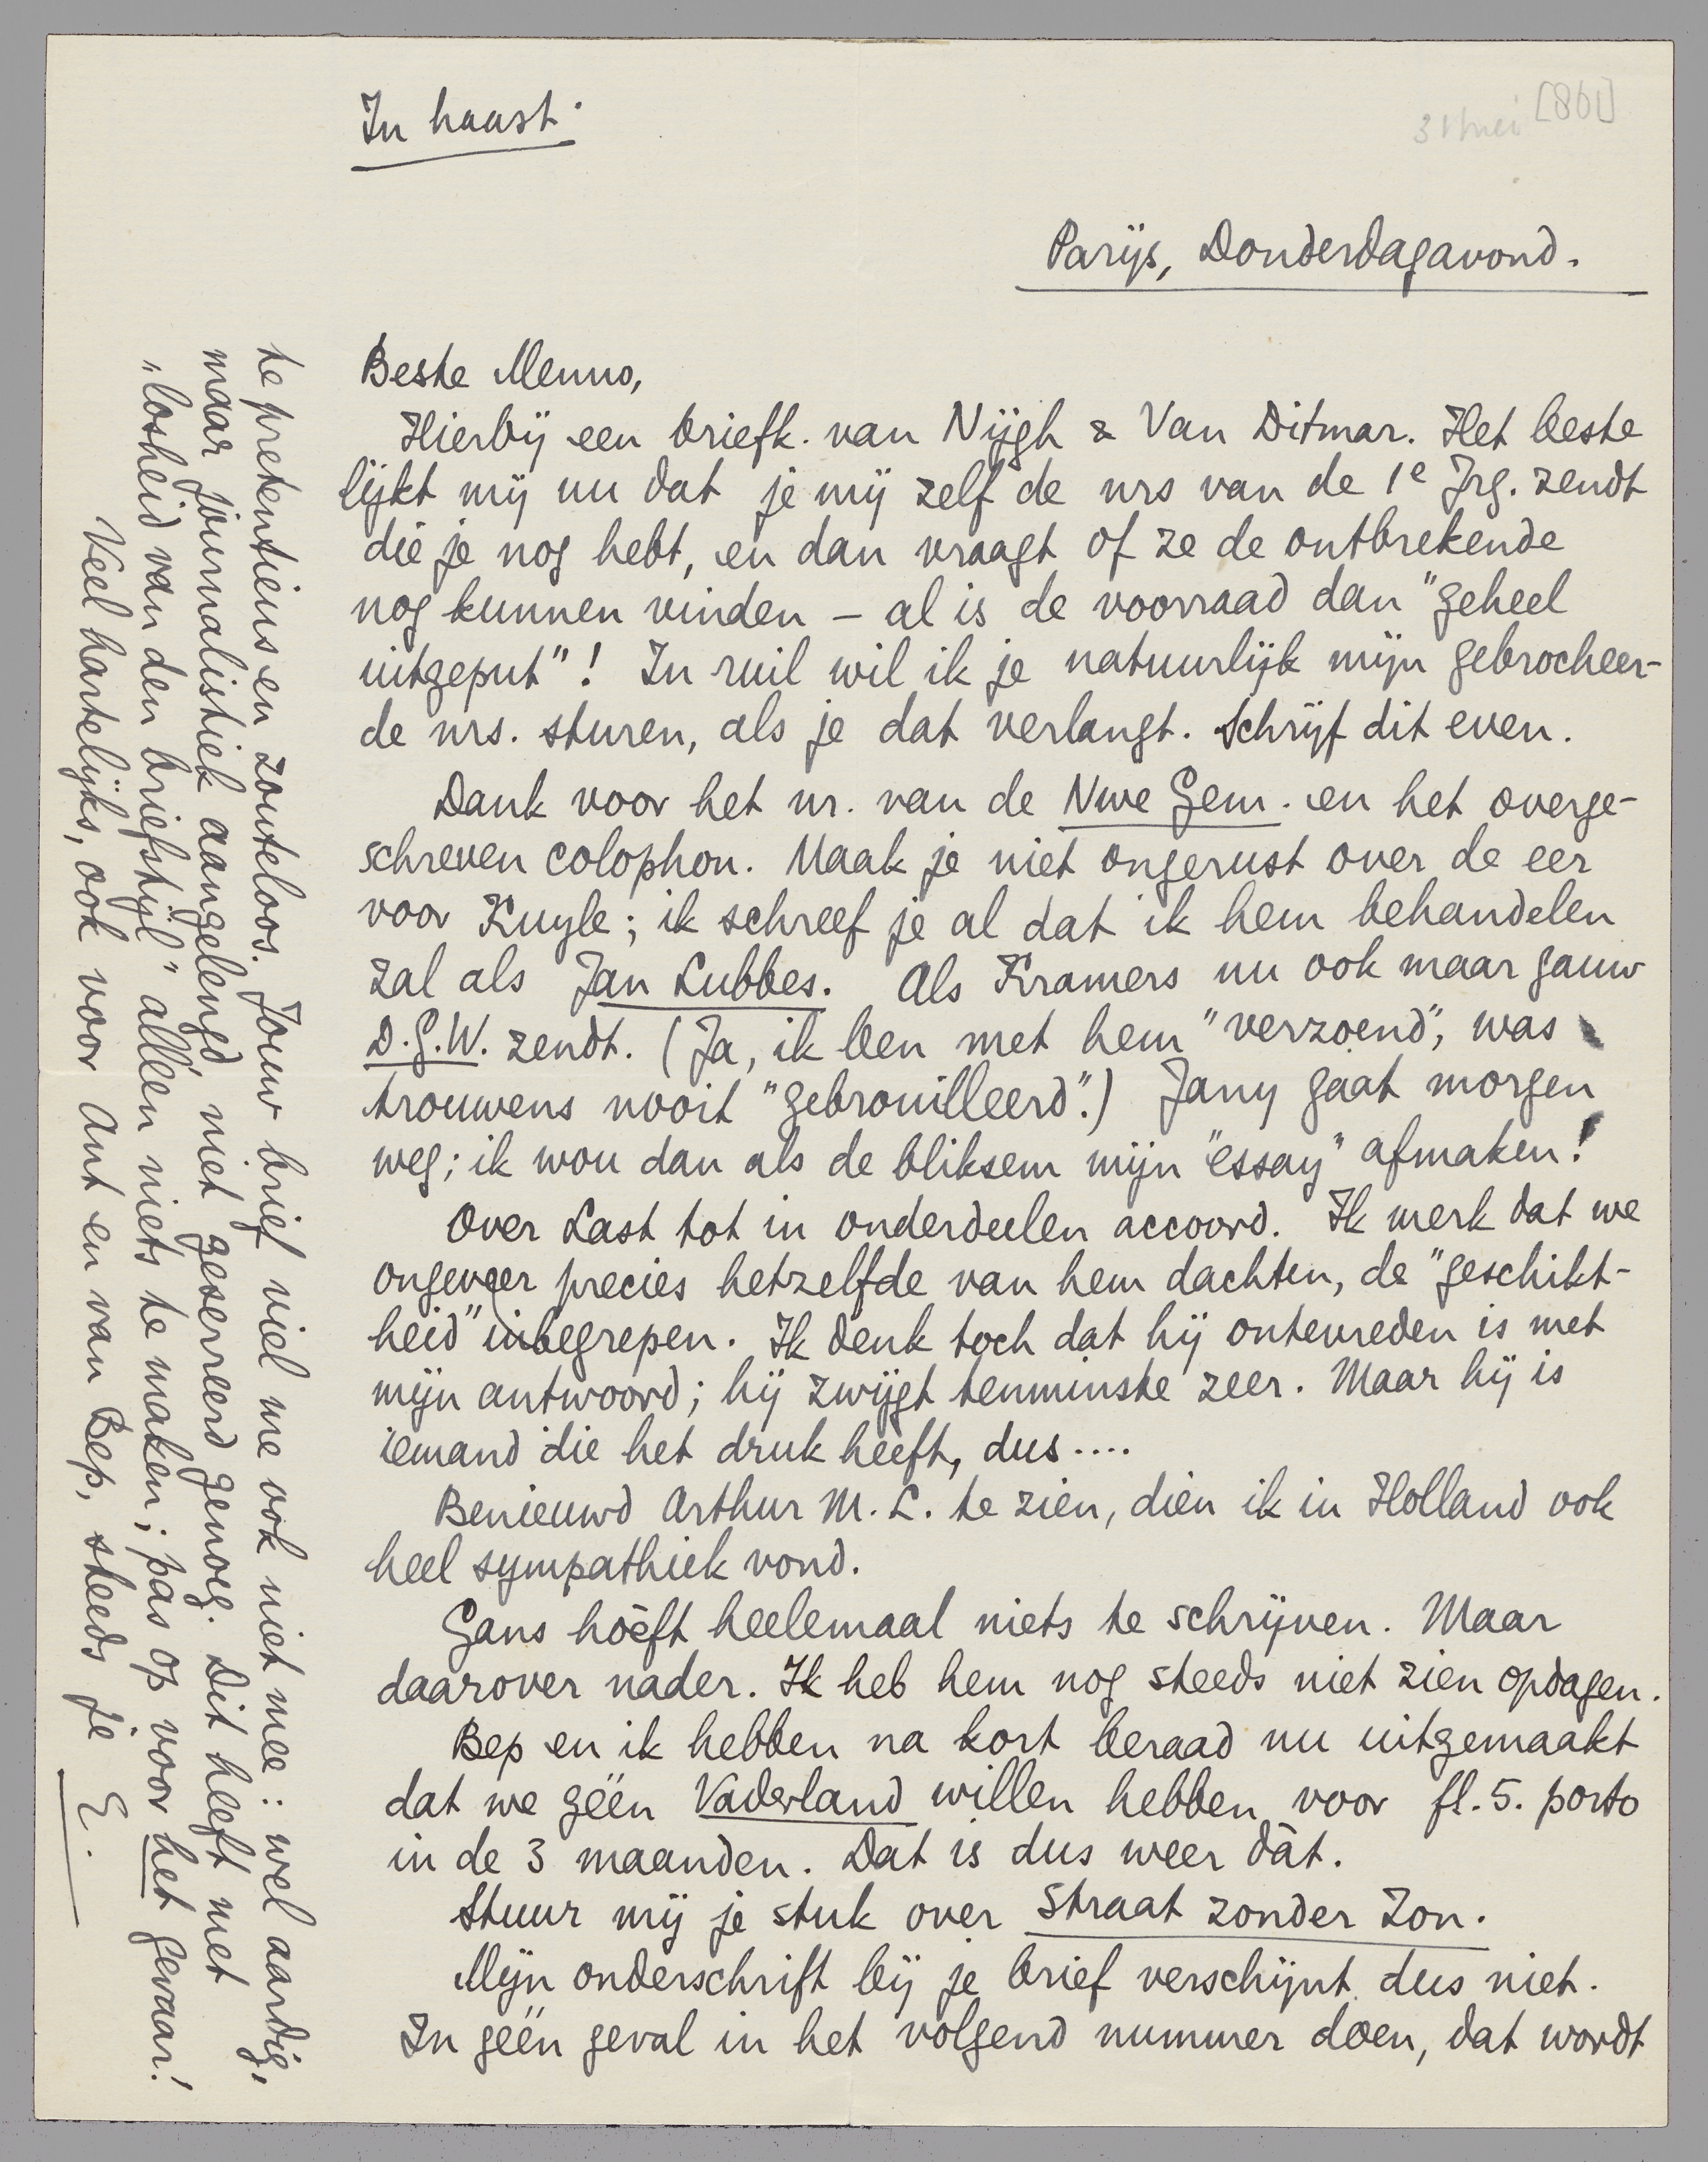 In haast.
31 mei [861]
Parijs, Donderdagavond.
Beste Menno,
Hierbij een briefk. van Nijgh & Van Ditmar. Het beste
lijkt mij nu dat je mij zelf de nrs van de 1e Jrg. zendt
die je nog hebt, en dan vraagt of ze de ontbrekende
nog kunnen vinden – al is de voorraad dan "geheel
uitgeput"! In ruil wil ik je natuurlijk mijn gebrocheer-
de nrs. sturen, als je dat verlangt. Schrijf dit even.
Dank voor het nr. van de Nwe Gem. en het overge-
schreven colophon. Maak je niet ongerust over de eer
voor Kuyle; ik schreef je al dat ik hem behandelen
zal als Jan Lubbes. Als Kramers nu ook maar gauw
D.G.W. zendt. (Ja, ik ben met hem "verzoend", was
trouwens nooit "gebrouilleerd".) Jany gaat morgen
weg; ik wou dan als de bliksem mijn "essay" afmaken!
Over Last tot in onderdeelen accoord. Ik merk dat we
ongeveer precies hetzelfde van hem dachten, de "geschikt-
heid" inbegrepen. Ik denk toch dat hij ontevreden is met
mijn antwoord; hij zwijgt tenminste zeer. Maar hij is
iemand die het druk heeft, dus....
Benieuwd Arthur M. L. te zien, dien ik in Holland ook
heel sympathiek vond.
Gans hoéft heelemaal niets te schrijven. Maar
daarover nader. Ik heb hem nog steeds niet zien opdagen.
Bep en ik hebben na kort beraad nu uitgemaakt
dat we géén Vaderland willen hebben voor fl. 5. porto
in de 3 maanden. Dat is dus weer dàt.
Stuur mij je stuk over Straat zonder Zon.
Mijn onderschrift bij je brief verschijnt dus niet.
In géén geval in het volgend nummer doen, dat wordt
te pretentieus en zouteloos. Jouw brief viel me ook niet mee: wel aardig,
maar journalistiek aangelengd, niet geserreerd genoeg. Dit heeft met
"losheid van den briefstijl" alléén niets te maken; pas op voor het gevaar!
Veel hartelijks, ook voor Ant en van Bep, steeds je E.